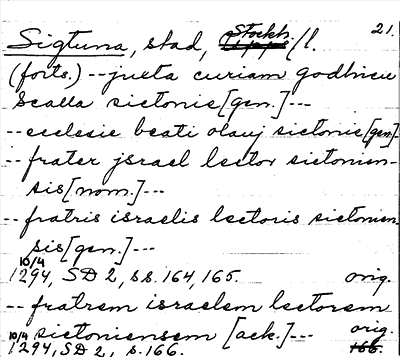 21.
Sigtuna, stad, Stockh. l.
(forts.) -- juxta curiam godhicu
Scalla sictonie[gen.]---
-- ecclesie beati olauj sictonie[gen]-
-- frater jsrael lector sictonien-
sis[nom.]---
-- fratris israelis lectoris sictonien-
sis[gen.]---
10/4
1294, SD 2, s.s. 164, 165. orig.
-- fratrem israelem lectorem
sictoniensem [ack.]--- orig.
10/4 1294, SD 2, s. 166.